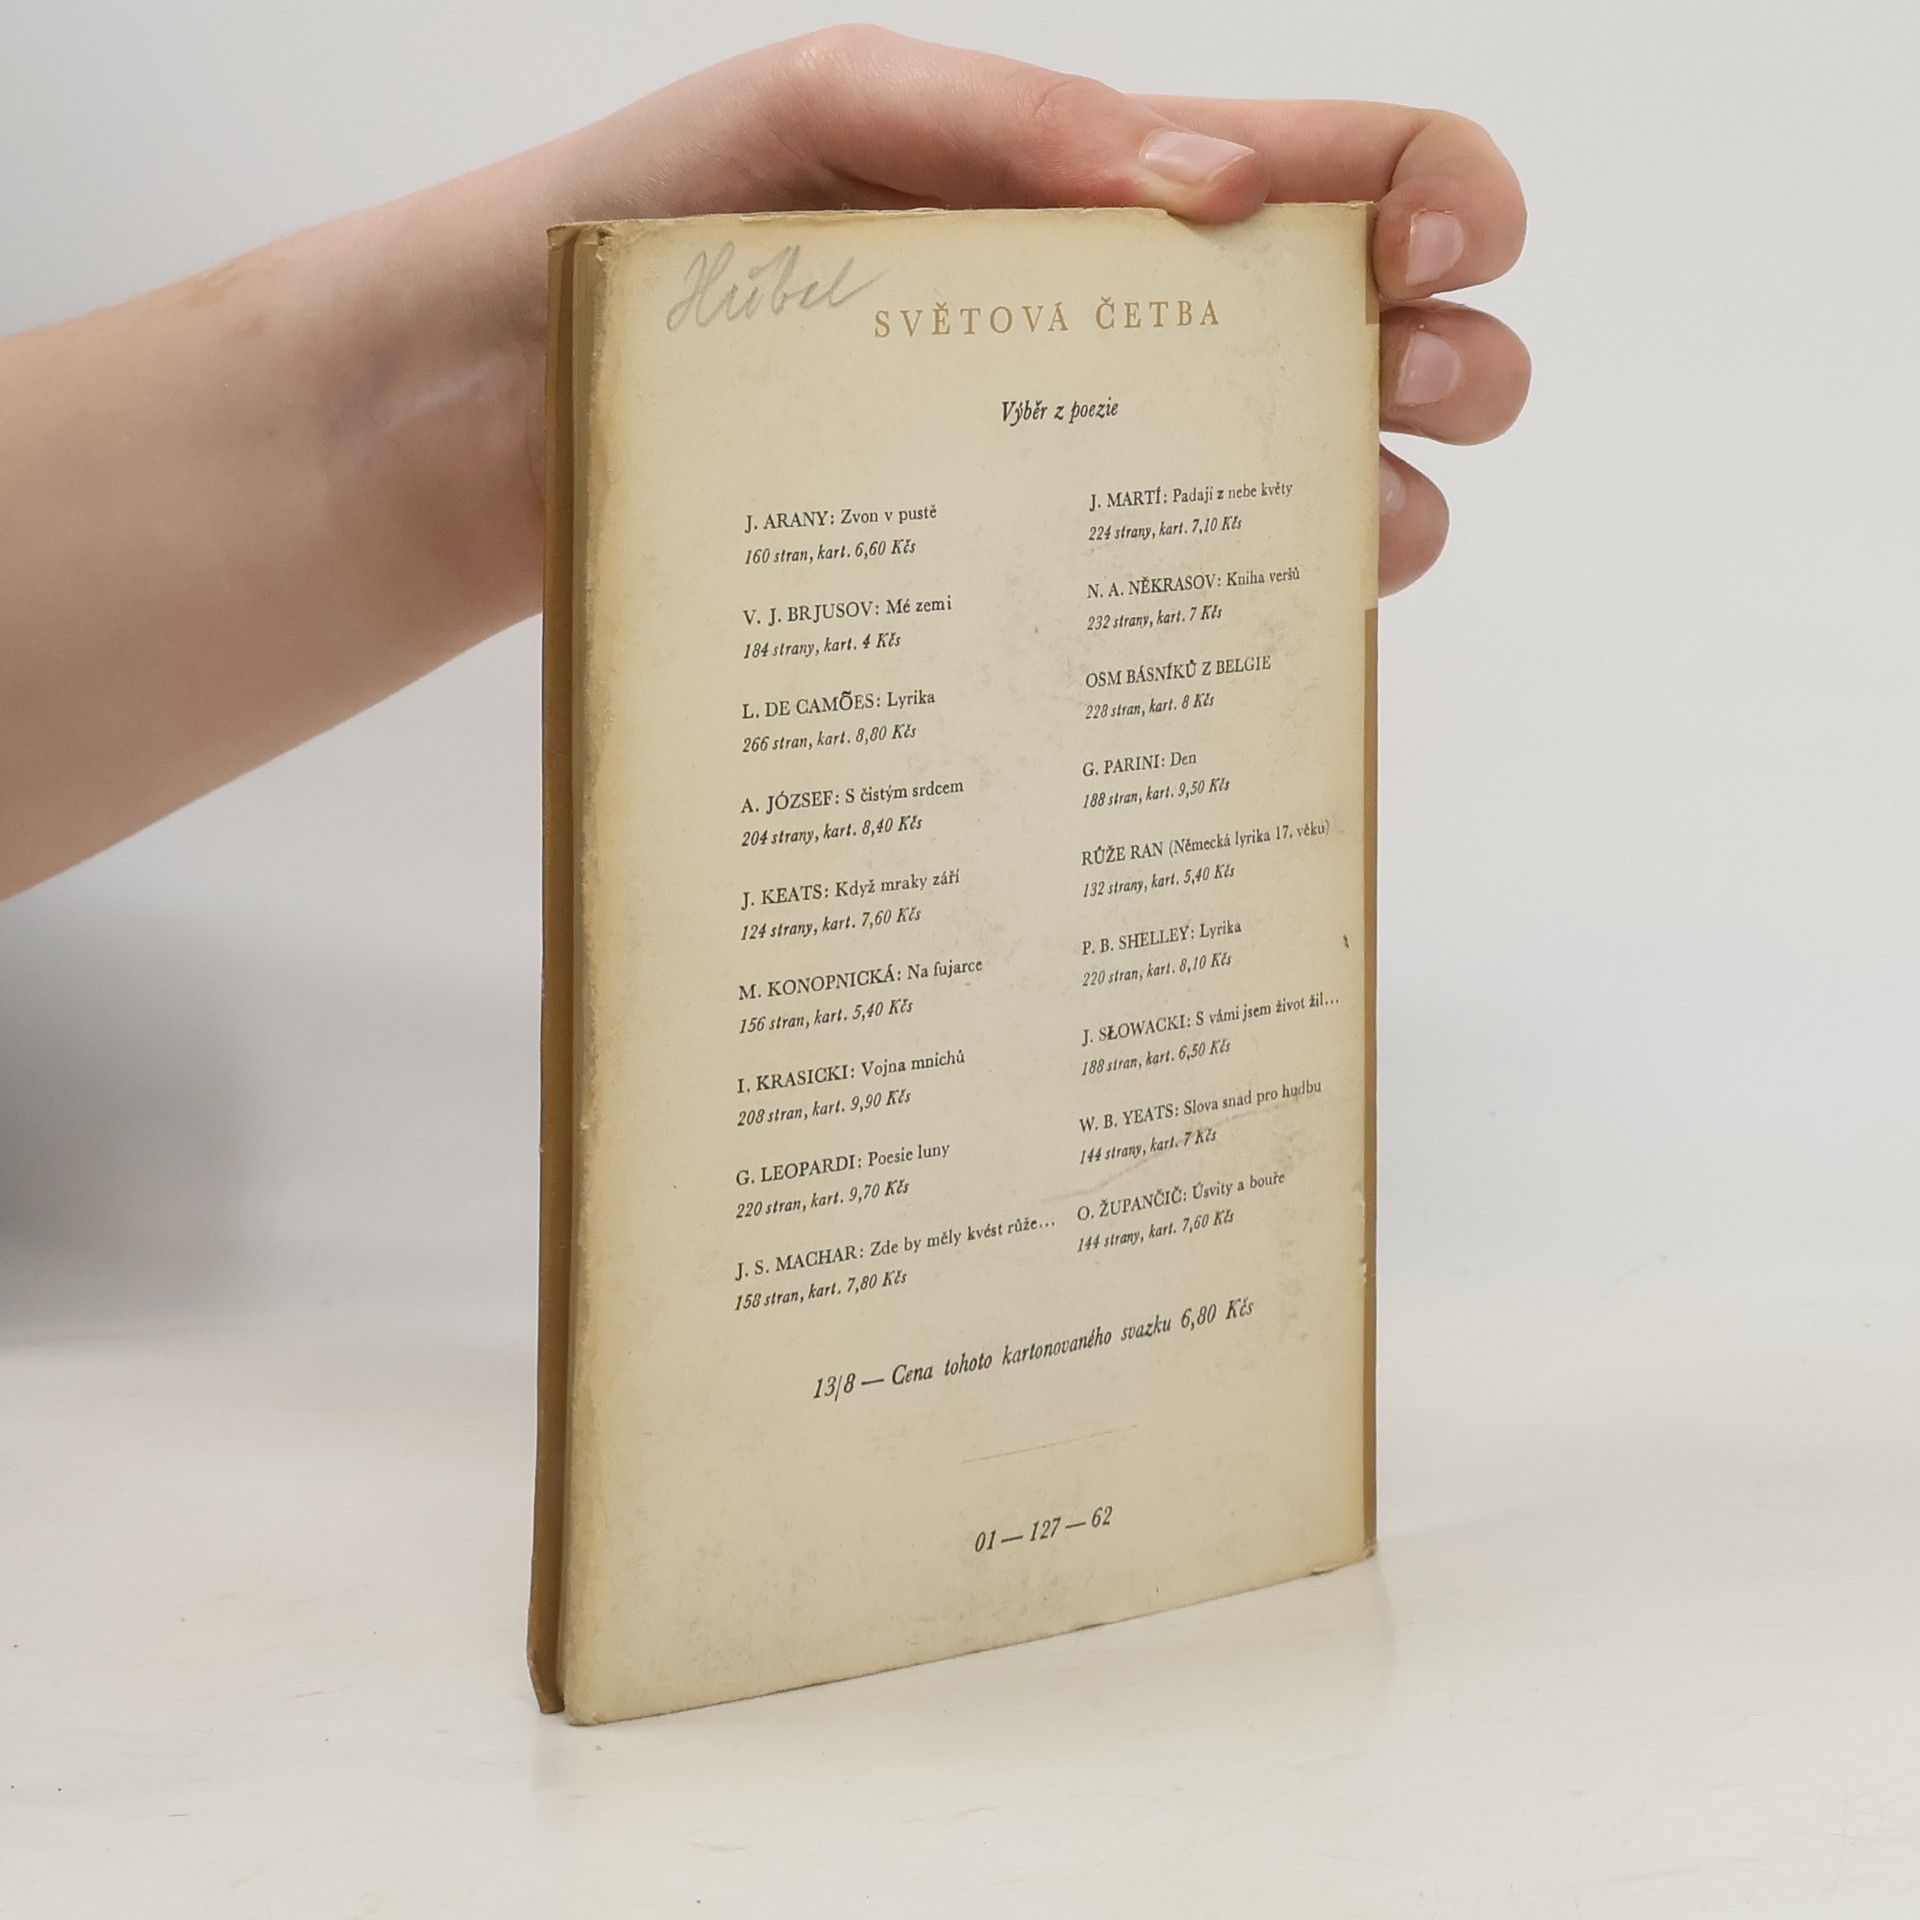 Hübel
SVĚTOVÁ ČETBA
Výběr z poezie
J. ARANY: Zvon v pustě
160 stran, kart. 6,60 Kčs
V. J. BRJUSOV: Mé zemi
184 strany, kart. 4 Kčs
L. DE CAMÕES: Lyrika
266 stran, kart. 8,80 Kčs
A. JÓZSEF: S čistým srdcem
204 strany, kart. 8,40 Kčs
J. KEATS: Když mraky září
124 strany, kart. 7,60 Kčs
M. KONOPNICKÁ: Na fujarce
156 stran, kart. 5,40 Kčs
I. KRASICKI: Vojna mnichů
208 stran, kart. 9,90 Kčs
G. LEOPARDI: Poesie luny
220 stran, kart. 9,70 Kčs
J. S. MACHAR: Zde by měly kvést růže...
158 stran, kart. 7,80 Kčs
J. MARTÍ: Padají z nebe květy
224 strany, kart. 7,10 Kčs
N. A. NĚKRASOV: Kniha veršů
232 strany, kart. 7 Kčs
OSM BÁSNÍKŮ Z BELGIE
228 stran, kart. 8 Kčs
G. PARINI: Den
188 stran, kart. 9,50 Kčs
RŮŽE RAN (Německá lyrika 17. věku)
132 strany, kart. 5,40 Kčs
P. B. SHELLEY: Lyrika
220 stran, kart. 8,10 Kčs
J. SŁOWACKI: S vámi jsem život žil...
188 stran, kart. 6,50 Kčs
W. B. YEATS: Slova snad pro hudbu
144 strany, kart. 7 Kčs
O. ŽUPANČIČ: Úsvity a bouře
144 strany, kart. 7,60 Kčs
13/8 — Cena tohoto kartonovaného svazku 6,80 Kčs
01 — 127 — 62